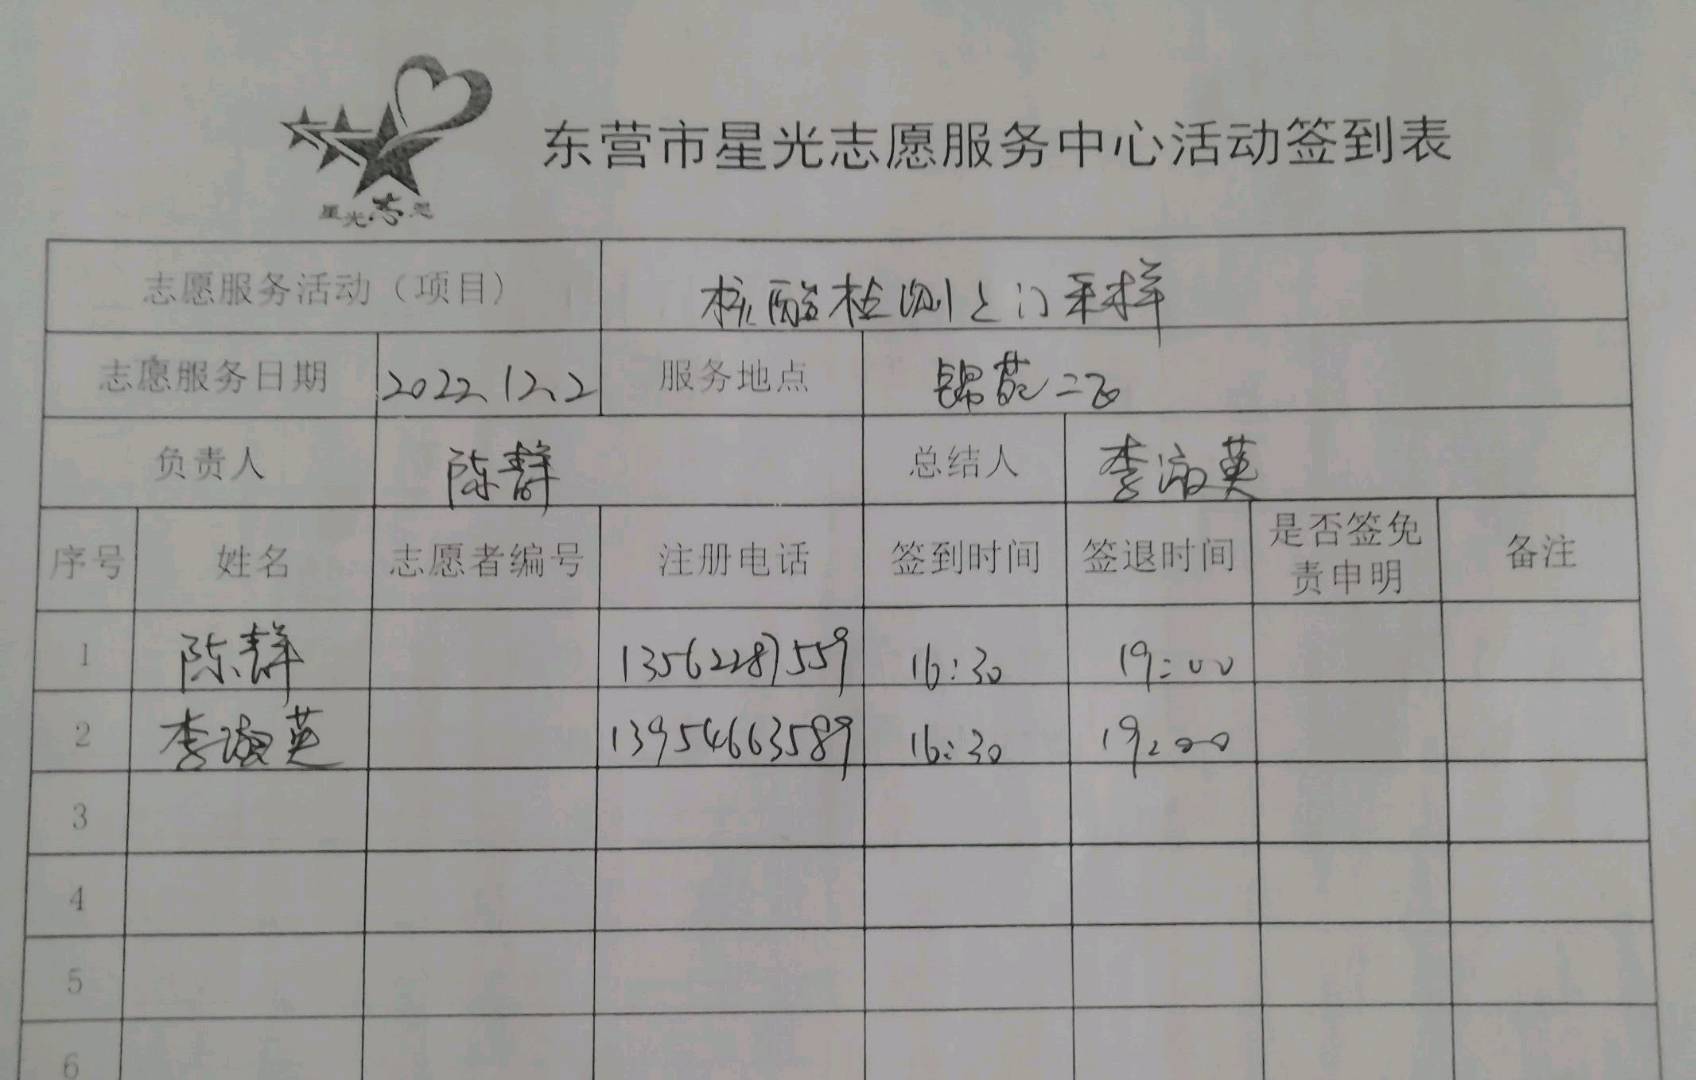 东营市星光志愿服务中心活动签到表
星光志愿
志愿服务活动（项目） 核酸检测上门采样
志愿服务日期 2022.12.2 服务地点 锦苑二区
负责人 陈静 总结人 李淑英
序号 姓名 志愿者编号 注册电话 签到时间 签退时间 是否签免责申明 备注
1 陈静 13562287559 16:30 19:00
2 李淑英 13954663589 16:30 19:00
3
4
5
6